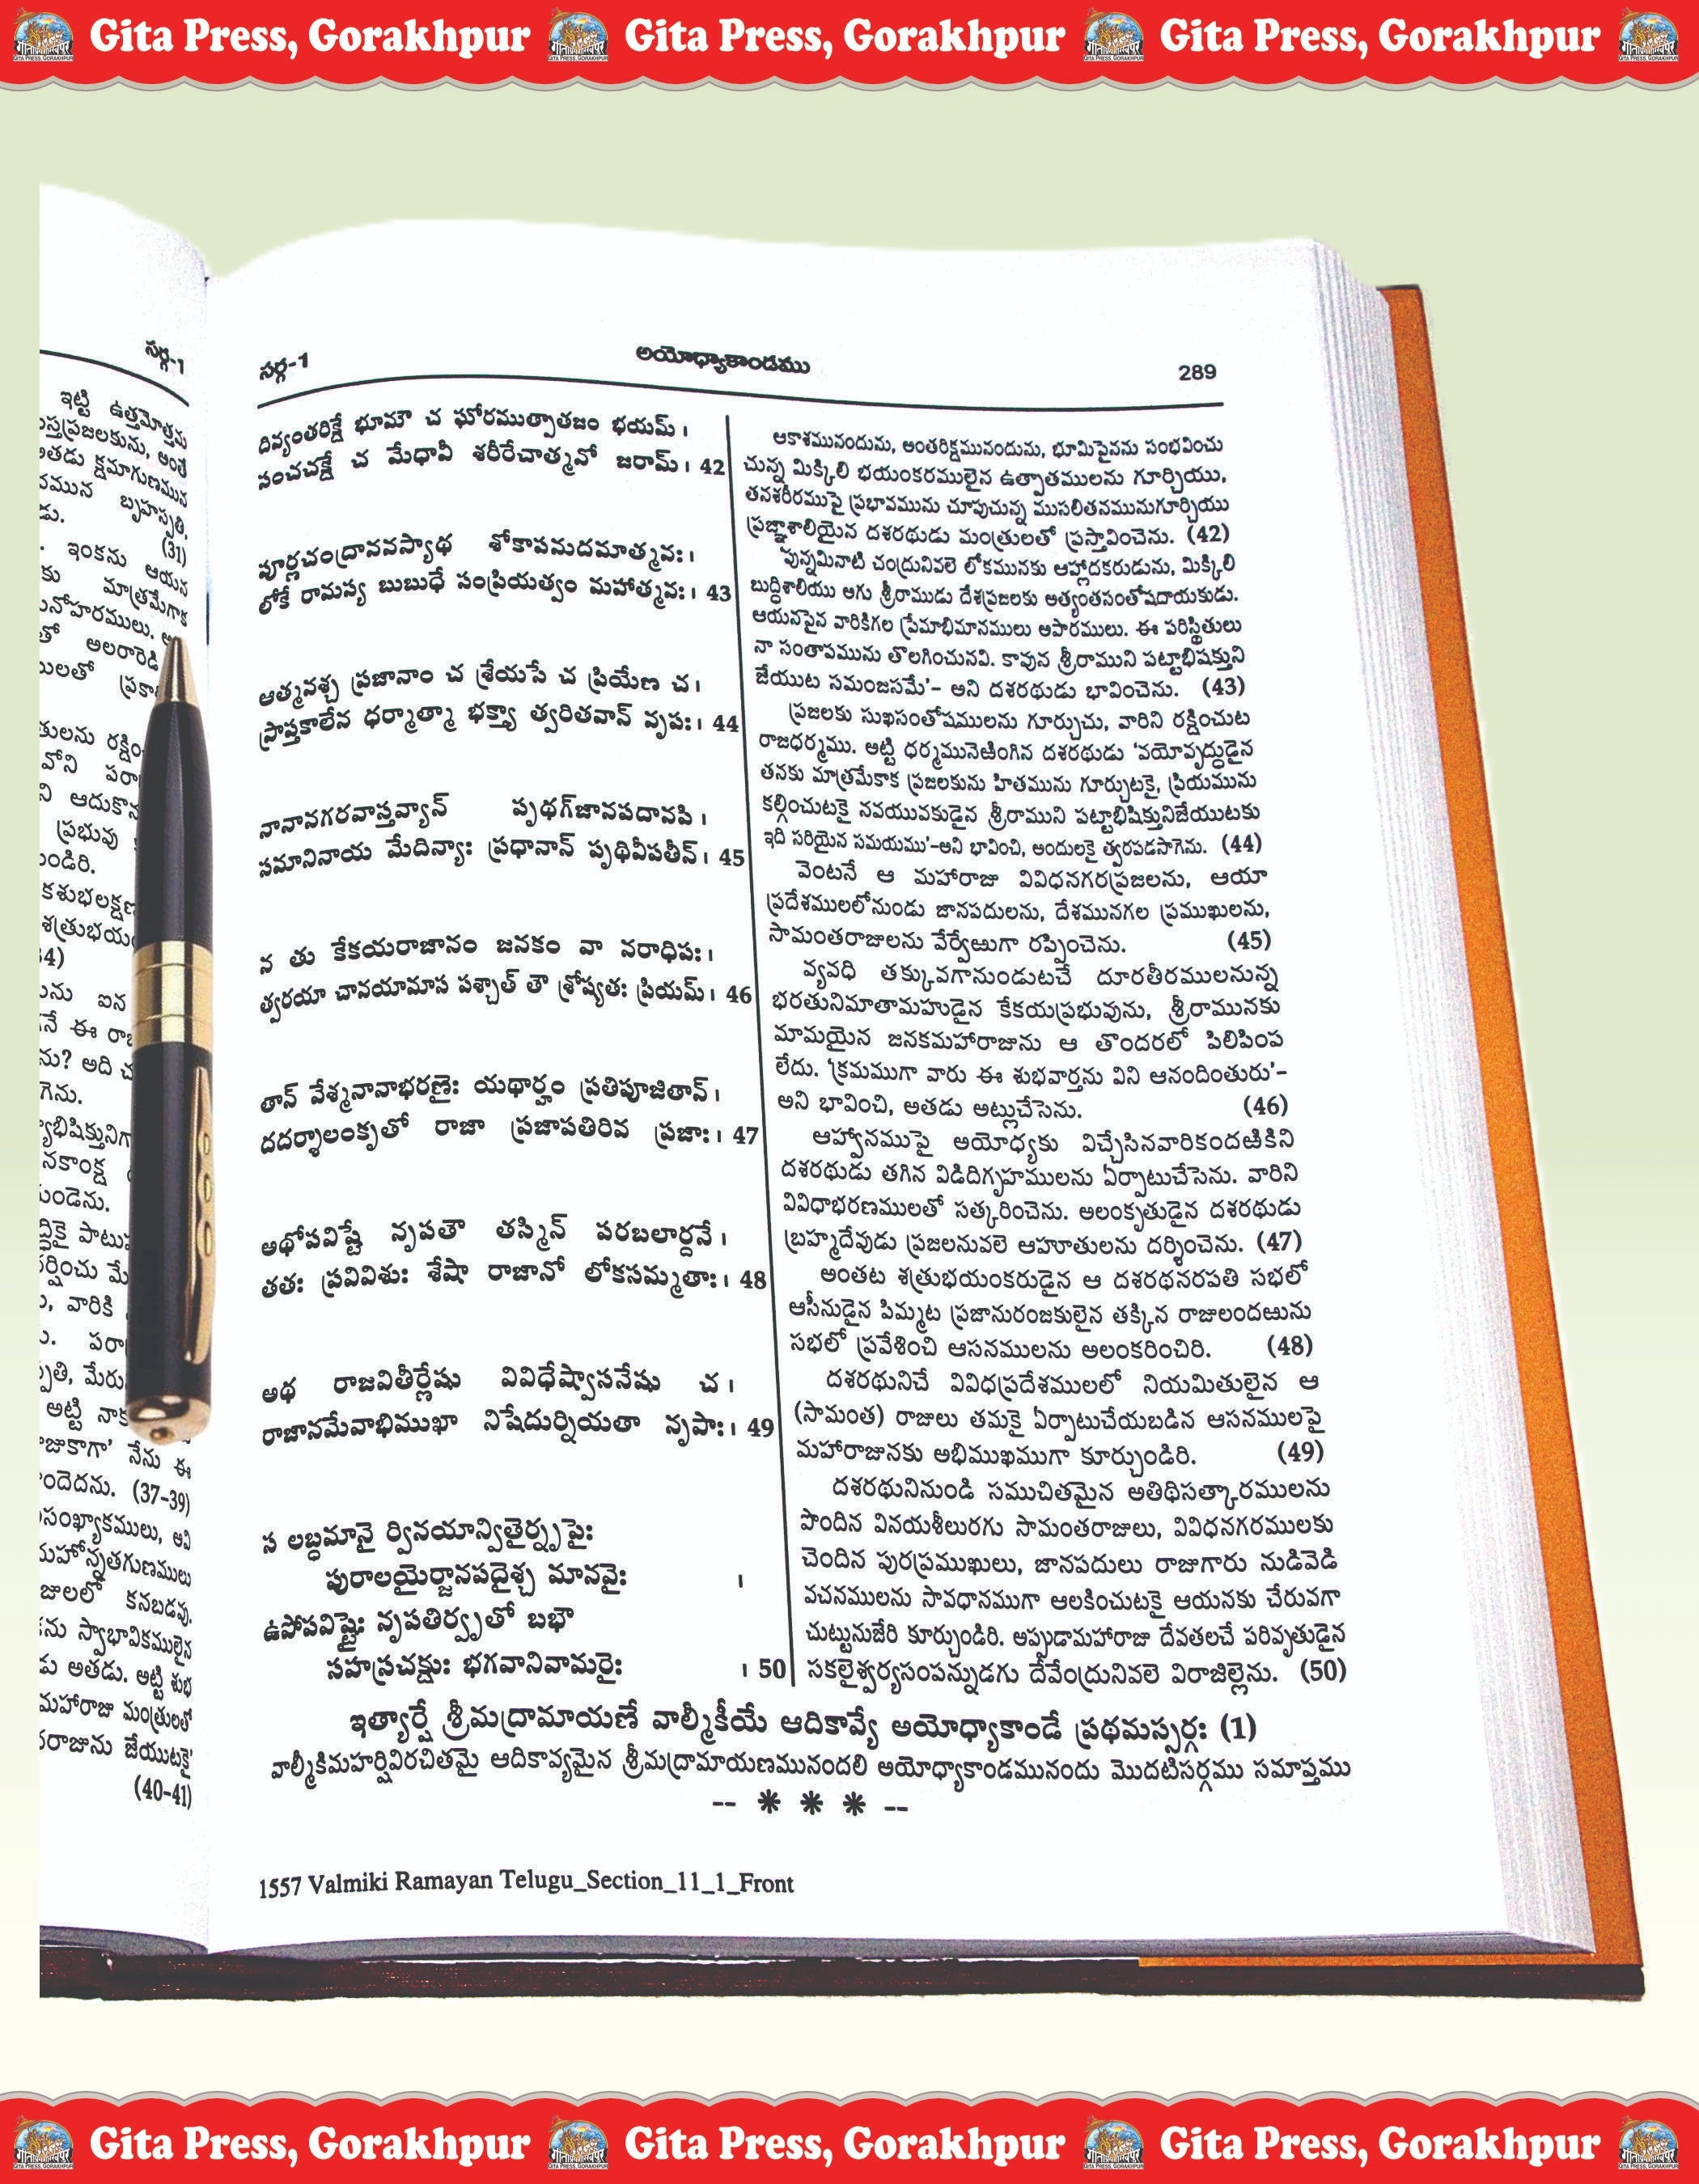 Gita Press, Gorakhpur Gita Press, Gorakhpur Gita Press, Gorakhpur
సర్గ-1
ఇట్టి ఉత్తమోత్తమ
స్తప్రజలకును, అంతే
అతడు క్షమాగుణమున
నమున బృహస్పతి,
డు. (31)
ఇంకను ఆయన
కు మాత్రమేగాక
నోహరములు.
తో అలరారెడి
ములతో
తులను
వోని
ని ఆదుకొన
ప్రభువు
ండిరి.
కశుభలక్షణ
శత్రుభయ
34)
ను ఐన
నే ఈ
ను? అది
గెను.
భిషిక్తునిగా
నకాంక్ష
ండెను.
ద్ధికై
ర్షించు మే
వారికి
పరా
తి, మేరు
అట్టి నాక
జుకాగా' నేను ఈ
ందెదను. (37-39)
సంఖ్యాకములు, అవి
మహోన్నతగుణములు
జులలో కనబడవు.
ను స్వాభావికములైన
డు అతడు. అట్టి శుభ
మహారాజు మంత్రులతో
రాజును జేయుటకై
(40-41)
సర్గ-1 అయోధ్యాకాండము 289
దివ్యంతరిక్షే భూమౌ చ ఘోరముత్పాతజం భయమ్।
సంచచక్షే చ మేధావీ శరీరేచాత్మనో జరామ్। 42
పూర్ణచంద్రాననస్యాథ శోకాపనుదమాత్మనః।
లోకే రామస్య బుబుధే సంప్రియత్వం మహాత్మనః। 43
ఆత్మనశ్చ ప్రజానాం చ శ్రేయసే చ ప్రియేణ చ।
ప్రాప్తకాలేన ధర్మాత్మా భక్త్యా త్వరితవాన్ నృపః। 44
నానానగరవాస్తవ్యాన్ పృథగ్‌జానపదానపి।
సమానినాయ మేదిన్యాః ప్రధానాన్ పృథివీపతీన్। 45
న తు కేకయరాజానం జనకం వా నరాధిపః।
త్వరయా చానయామాస పశ్చాత్ తౌ శ్రోష్యతః ప్రియమ్। 46
తాన్ వేశ్మనానాభరణైః యథార్హం ప్రతిపూజితాన్।
దదర్శాలంకృతో రాజా ప్రజాపతిరివ ప్రజాః। 47
అథోపవిష్టే నృపతౌ తస్మిన్ పరబలార్దనే।
తతః ప్రవివిశుః శేషా రాజానో లోకసమ్మతాః। 48
అథ రాజవితీర్ణేషు వివిధేష్వాసనేషు చ।
రాజానమేవాభిముఖా నిషేదుర్నియతా నృపాః। 49
స లబ్ధమానై ర్వినయాన్వితైర్నృపైః
పురాలయైర్జానపదైశ్చ మానవైః ।
ఉపోపవిష్టైః నృపతిర్వృతో బభౌ
సహస్రచక్షుః భగవానివామరైః । 50
ఆకాశమునందును, అంతరిక్షమునందును, భూమిపైనను సంభవించు
చున్న మిక్కిలి భయంకరములైన ఉత్పాతములను గూర్చియు,
తనశరీరముపై ప్రభావమును చూపుచున్న ముసలితనమునుగూర్చియు
ప్రజ్ఞాశాలియైన దశరథుడు మంత్రులతో ప్రస్తావించెను. (42)
'పున్నమినాటి చంద్రునివలె లోకమునకు ఆహ్లాదకరుడును, మిక్కిలి
బుద్ధిశాలియు అగు శ్రీరాముడు దేశప్రజలకు అత్యంతసంతోషదాయకుడు.
ఆయనపైన వారికిగల ప్రేమాభిమానములు అపారములు. ఈ పరిస్థితులు
నా సంతాపమును తొలగించునవి. కావున శ్రీరాముని పట్టాభిషిక్తుని
జేయుట సమంజసమే'- అని దశరథుడు భావించెను. (43)
ప్రజలకు సుఖసంతోషములను గూర్చుచు, వారిని రక్షించుట
రాజధర్మము. అట్టి ధర్మమునెఱింగిన దశరథుడు 'వయోవృద్ధుడైన
తనకు మాత్రమేకాక ప్రజలకును హితమును గూర్చుటకై, ప్రియమును
కల్గించుటకై నవయువకుడైన శ్రీరాముని పట్టాభిషిక్తునిజేయుటకు
ఇది సరియైన సమయము'-అని భావించి, అందులకై త్వరపడసాగెను. (44)
వెంటనే ఆ మహారాజు వివిధనగరప్రజలను, ఆయా
ప్రదేశములలోనుండు జానపదులను, దేశమునగల ప్రముఖులను,
సామంతరాజులను వేర్వేఱుగా రప్పించెను. (45)
వ్యవధి తక్కువగానుండుటచే దూరతీరములనున్న
భరతునిమాతామహుడైన కేకయప్రభువును, శ్రీరామునకు
మామయైన జనకమహారాజును ఆ తొందరలో పిలిపింప
లేదు. 'క్రమముగా వారు ఈ శుభవార్తను విని ఆనందింతురు'-
అని భావించి, అతడు అట్లుచేసెను. (46)
ఆహ్వానముపై అయోధ్యకు విచ్చేసినవారికందఱికిని
దశరథుడు తగిన విడిదిగృహములను ఏర్పాటుచేసెను. వారిని
వివిధాభరణములతో సత్కరించెను. అలంకృతుడైన దశరథుడు
బ్రహ్మదేవుడు ప్రజలనువలె ఆహూతులను దర్శించెను. (47)
అంతట శత్రుభయంకరుడైన ఆ దశరథనరపతి సభలో
ఆసీనుడైన పిమ్మట ప్రజానురంజకులైన తక్కిన రాజులందఱును
సభలో ప్రవేశించి ఆసనములను అలంకరించిరి. (48)
దశరథునిచే వివిధప్రదేశములలో నియమితులైన ఆ
(సామంత) రాజులు తమకై ఏర్పాటుచేయబడిన ఆసనములపై
మహారాజునకు అభిముఖముగా కూర్చుండిరి. (49)
దశరథునినుండి సముచితమైన అతిథిసత్కారములను
పొందిన వినయశీలురగు సామంతరాజులు, వివిధనగరములకు
చెందిన పురప్రముఖులు, జానపదులు రాజుగారు నుడివెడి
వచనములను సావధానముగా ఆలకించుటకై ఆయనకు చేరువగా
చుట్టునుజేరి కూర్చుండిరి. అప్పుడామహారాజు దేవతలచే పరివృతుడైన
సకలైశ్వర్యసంపన్నుడగు దేవేంద్రునివలె విరాజిల్లెను. (50)
ఇత్యార్షే శ్రీమద్రామాయణే వాల్మీకీయే ఆదికావ్యే అయోధ్యాకాండే ప్రథమస్సర్గః (1)
వాల్మీకిమహర్షివిరచితమై ఆదికావ్యమైన శ్రీమద్రామాయణమునందలి అయోధ్యాకాండమునందు మొదటిసర్గము సమాప్తము
-- * * * --
1557 Valmiki Ramayan Telugu_Section_11_1_Front
Gita Press, Gorakhpur Gita Press, Gorakhpur Gita Press, Gorakhpur